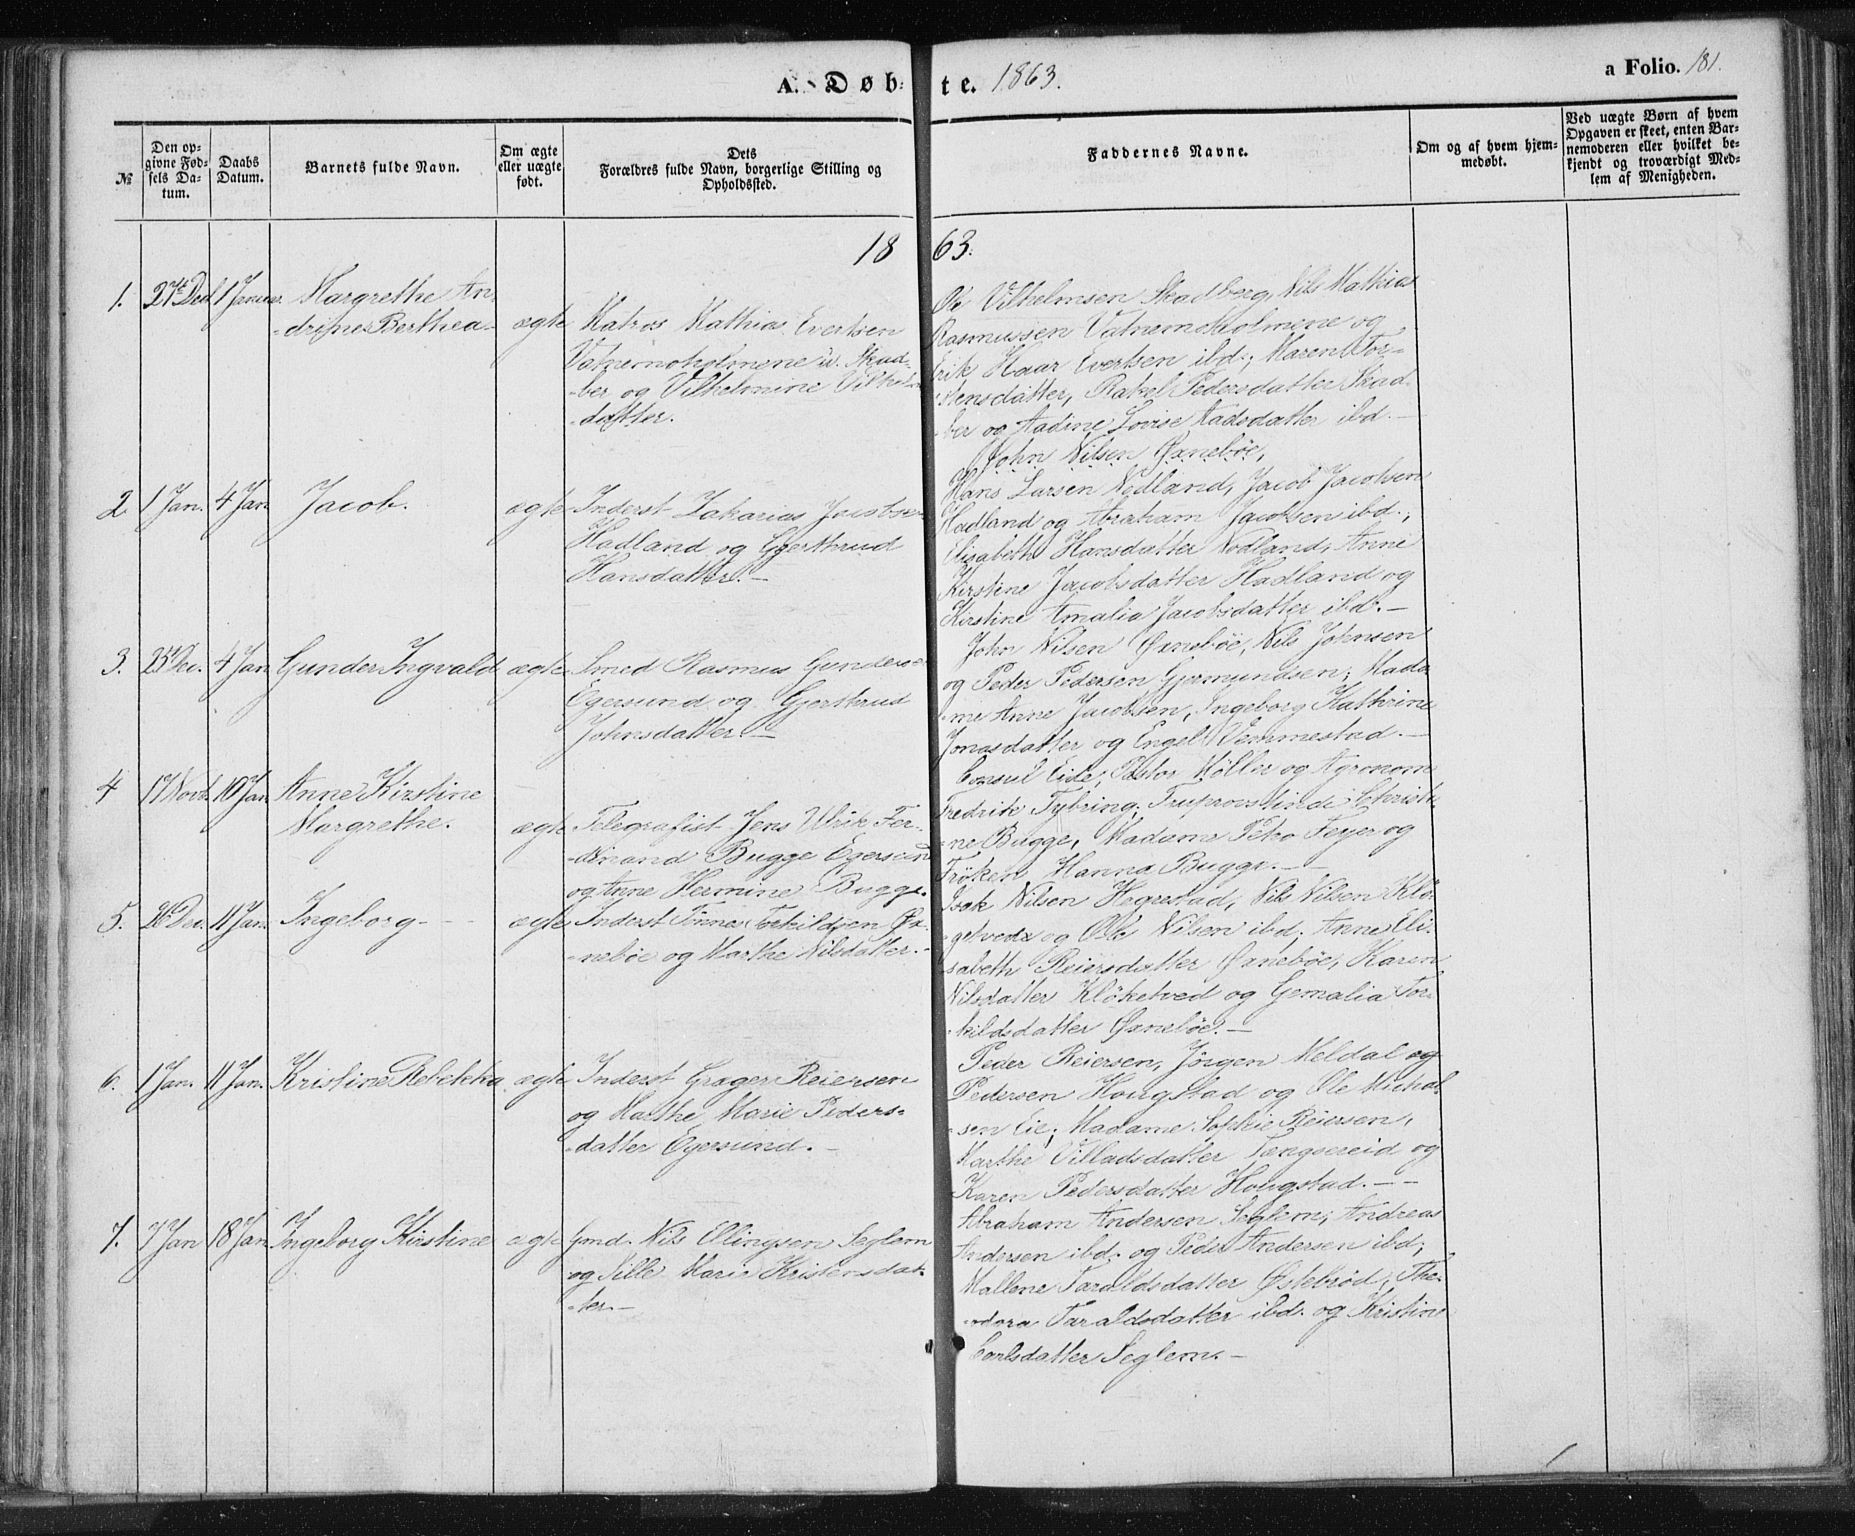 A. Døbte. 1863.
a Folio. 181.
№
Den opgivne Fødsels Datum.
Daabs Datum.
Barnets fulde Navn.
Om ægte eller uægte født.
Dets Forældres fulde Navn, borgerlige Stilling og Opholdssted.
Faddernes Navne.
Om og af hvem hjemmedøbt.
Ved uægte Børn af hvem Opgaven er skeet, enten Barnemoderen eller hvilket bekjendt og troværdigt Medlem af Menigheden.
1863.
1. 27de Dec. 1 Januar. Margrethe An-
-drine Berthea- ægte Matros Mathias Evertsen
Vatnemoholmene v. Skad-
-ber og Vilhelmine
-datter.
Ole Vilhelmsen Skadberg, Nils Mathias
Rasmussen Vatnemoholmene og
Erik Haar Evertsen ibd.; Maren Tor-
-stensdatter, Rakel Pedersdatter Skad-
-ber og Aadine Lovise Aadsdatter ibd.-
John Nilsen Øxnebøe,
2. 1 Jan. 4 Jan. Jacob. ægte Inderst Zakarias Jacobsen
Hadland og Gjertrud
Hansdatter.-
Hans Larsen Nodland, Jacob Jacobsen
Hadland og Abraham Jacobsen ibd.;
Elisabeth Hansdatter Nodland, Anne
Kirstine Jacobsdatter Hadland og
Kirstine Amalia Jacobsdatter ibd.-
3. 25 Dec. 4 Jan. Gunder Ingvald ægte Smed Rasmus Gundersen
Egersund og Gjertrud
Johnsdatter.-
John Nilsen Øxnebøe, Nils Johnsen
og Peder Pedersen Gjermundsen; Mada-
-me Anne Jacobsen, Ingeborg Kathrine
Jonasdatter og Engel Vemmestad.-
4 17 Novb. 10 Jan. Anne Kirstine
Margrethe. ægte Telegrafist Jens Ulrik Fer-
-dinand Bugge Egersund
og Anne Hermine Bugge.
Consul Eide, Pastor Møller og Agronom
Fredrik Tybring; Fruprovstinde Christi-
-ne Bugge, Madame Feyer og
Frøken Hanna Bugge.-
5. 26 Dec. 11 Jan. Ingeborg- ægte Inderst Tønnes Torkildsen Øx-
-nebøe og Marthe Nilsdatter.-
Isak Nilsen Hegrestad, Nils Nilsen Klø-
-getvedt og Ole Nilsen ibd; Anne Eli-
-sabeth Reiersdatter Øxnebøe, Karen
Nilsdatter Kløketved og Gemalia Tor-
-kildsdatter Øxnebøe.-
6. 1 Jan. 11 Jan. Kristine Rebekka ægte Inderst Greger Reiersen
og Marthe Marie Peders-
-datter Egersund.-
Peder Reiersen, Jörgen Meldal og
Pedersen Hougstad og Ole Michal-
-sen Eie; Madame Sophie Reiersen,
Marthe Villadsdatter Tengsereid og
Karen Pedersdatter Hougstad.--
7. 7 Jan 18 Jan. Ingeborg Kirstine ægte Gmd. Nils Ellingsen Seglem
og Sille Marie Kristensdat-
-ter.-
Abraham Andersen Seglem; Andreas
Andersen ibd. og Peder Andersen ibd;
Mallene Taraldsdatter Østebrød, The-
-odora Taraldsdatter ibd. og Kristine
Carlsdatter Seglem.-